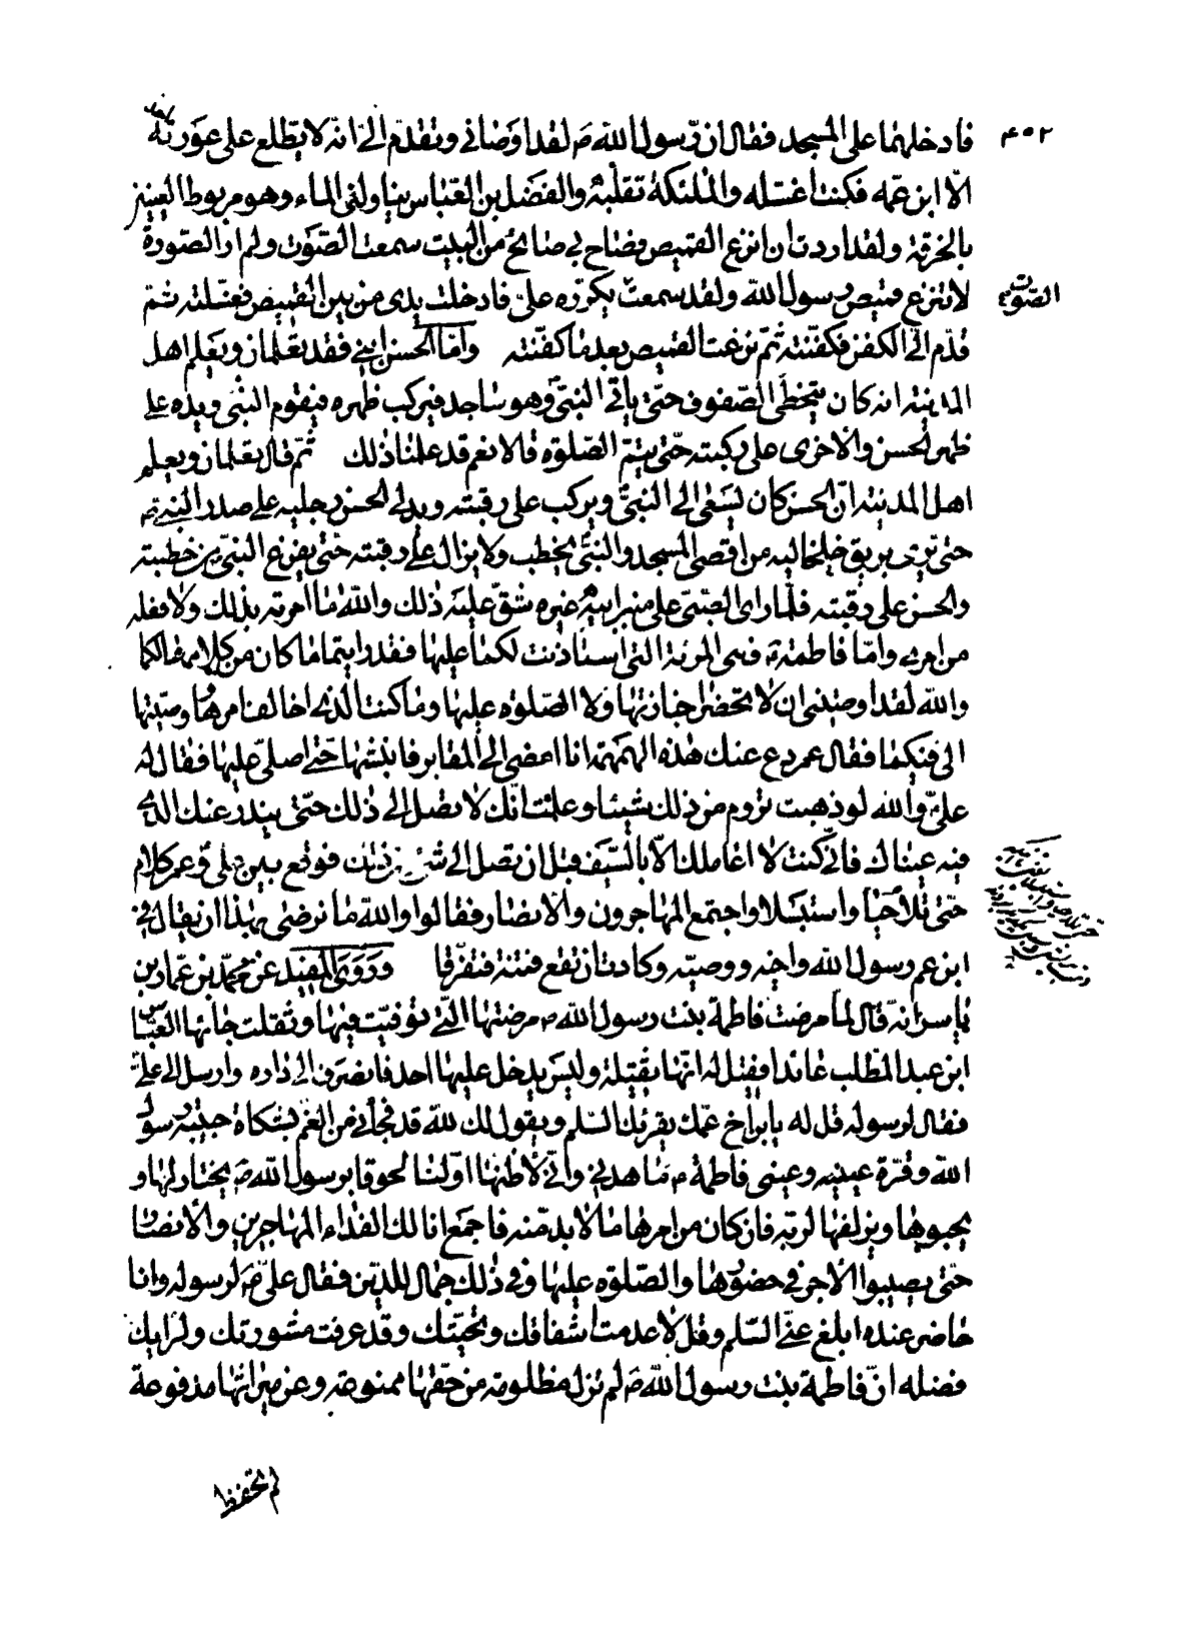 ٤٥٢
فادخلهما على المسجد فقال ان رسول الله ص لقد اوصاني وتقدم الي انه لا يطلع على عورته
الا ابن عمه فكنت اغسله والملئكة تقلبه والفضل بن العباس يناولني الماء وهو مربوط العينين
بالخرقة ولقد اردت ان انزع القميص فصاح بي صايح من البيت سمعت الصوت ولم ار الصورة
لا تنزع قميص رسول الله ولقد سمعت يكرره علي فادخلت يدي من بين القميص فغسلته ثم
الصوت
قدم الي الكفن فكفنته ثم نزعت القميص بعد ما كفنته واما الحسن ابني فقد تعلمان ويعلم اهل
المدينة انه كان يتخطى الصفوف حتى ياتي النبي وهو ساجد فيركب ظهره فيقوم النبي ويده على
ظهر الحسن والاخرى على ركبته حتى يتم الصلوة قالا نعم قد علمنا ذلك ثم قال تعلمان ويعلم
اهل المدينة ان الحسن كان يسعى الى النبي ويركب على رقبته ويدلي الحسن رجليه على صدر النبي ص
حتى يرى بريق خلخاليه من اقصى المسجد والنبي يخطب ولا يزال على رقبته حتى يفرغ النبي من خطبته
والحسن على رقبته فلما راى الصبي على منبر ابيه غيره شق عليه ذلك والله ما امرته بذلك ولا فعله
من امري واما فاطمة فهي المرئة التي استاذنت لكما عليها فقد رايتما ما كان من كلامها لكما
والله لقد اوصتني ان لا تحضرا جنازتها ولا الصلوة عليها وما كنت الذي اخالف امرها ووصيتها
الي فيكما فقال عمر دع عنك هذه الهمهمة انا امضي الى المقابر فانبشها حتى اصلي عليها فقال له
علي والله لو ذهبت تروم من ذلك شيئا وعلمت انك لا تصل الى ذلك حتى يندر عنك الذي
فيه عيناك فاني كنت لا اعاملك الا بالسيف قبل ان تصل الى شيء من ذلك فوقع بين علي وعمر كلام
حتى تلاحيا واستبسلا واجتمع المهاجرون والانصار فقالوا والله ما نرضى بهذا ان يقال في
ابن عم رسول الله واخيه ووصيه وكادت ان تقع فتنة فتفرقا وروى المفيد عن محمد بن عمار بن
ياسر انه قال لما مرضت فاطمة بنت رسول الله ص مرضتها التي توفيت فيها وثقلت جائها العباس
ابن عبد المطلب عائدا فقيل له انها ثقيلة وليس يدخل عليها احد فانصرف الى داره وارسل الى علي
فقال لرسوله قل له يابن اخ عمك يقرئك السلم ويقول لك لله قد فجاني من الغم بشكاة حبيبة رسول
الله وقرة عينيه وعيني فاطمة ما هدني واني لاظنها اولنا لحوقا برسول الله ص يختار لها و
يحبوها ويزلفها لربه فان كان من امرها ما لا بد منه فاجمع انا لك الفداء المهاجرين والانصار
حتى يصيبوا الاجر في حضورها والصلوة عليها وفي ذلك جمال للدين فقال علي لرسوله وانا
حاضر عنده ابلغ عمي السلم وقل لا عدمت اشفاقك وتحيتك وقد عرفت مشورتك ولرايك
فضله ان فاطمة بنت رسول الله ص لم تزل مظلومة من حقها ممنوعة وعن ميراثها مدفوعة
لم تحفظ